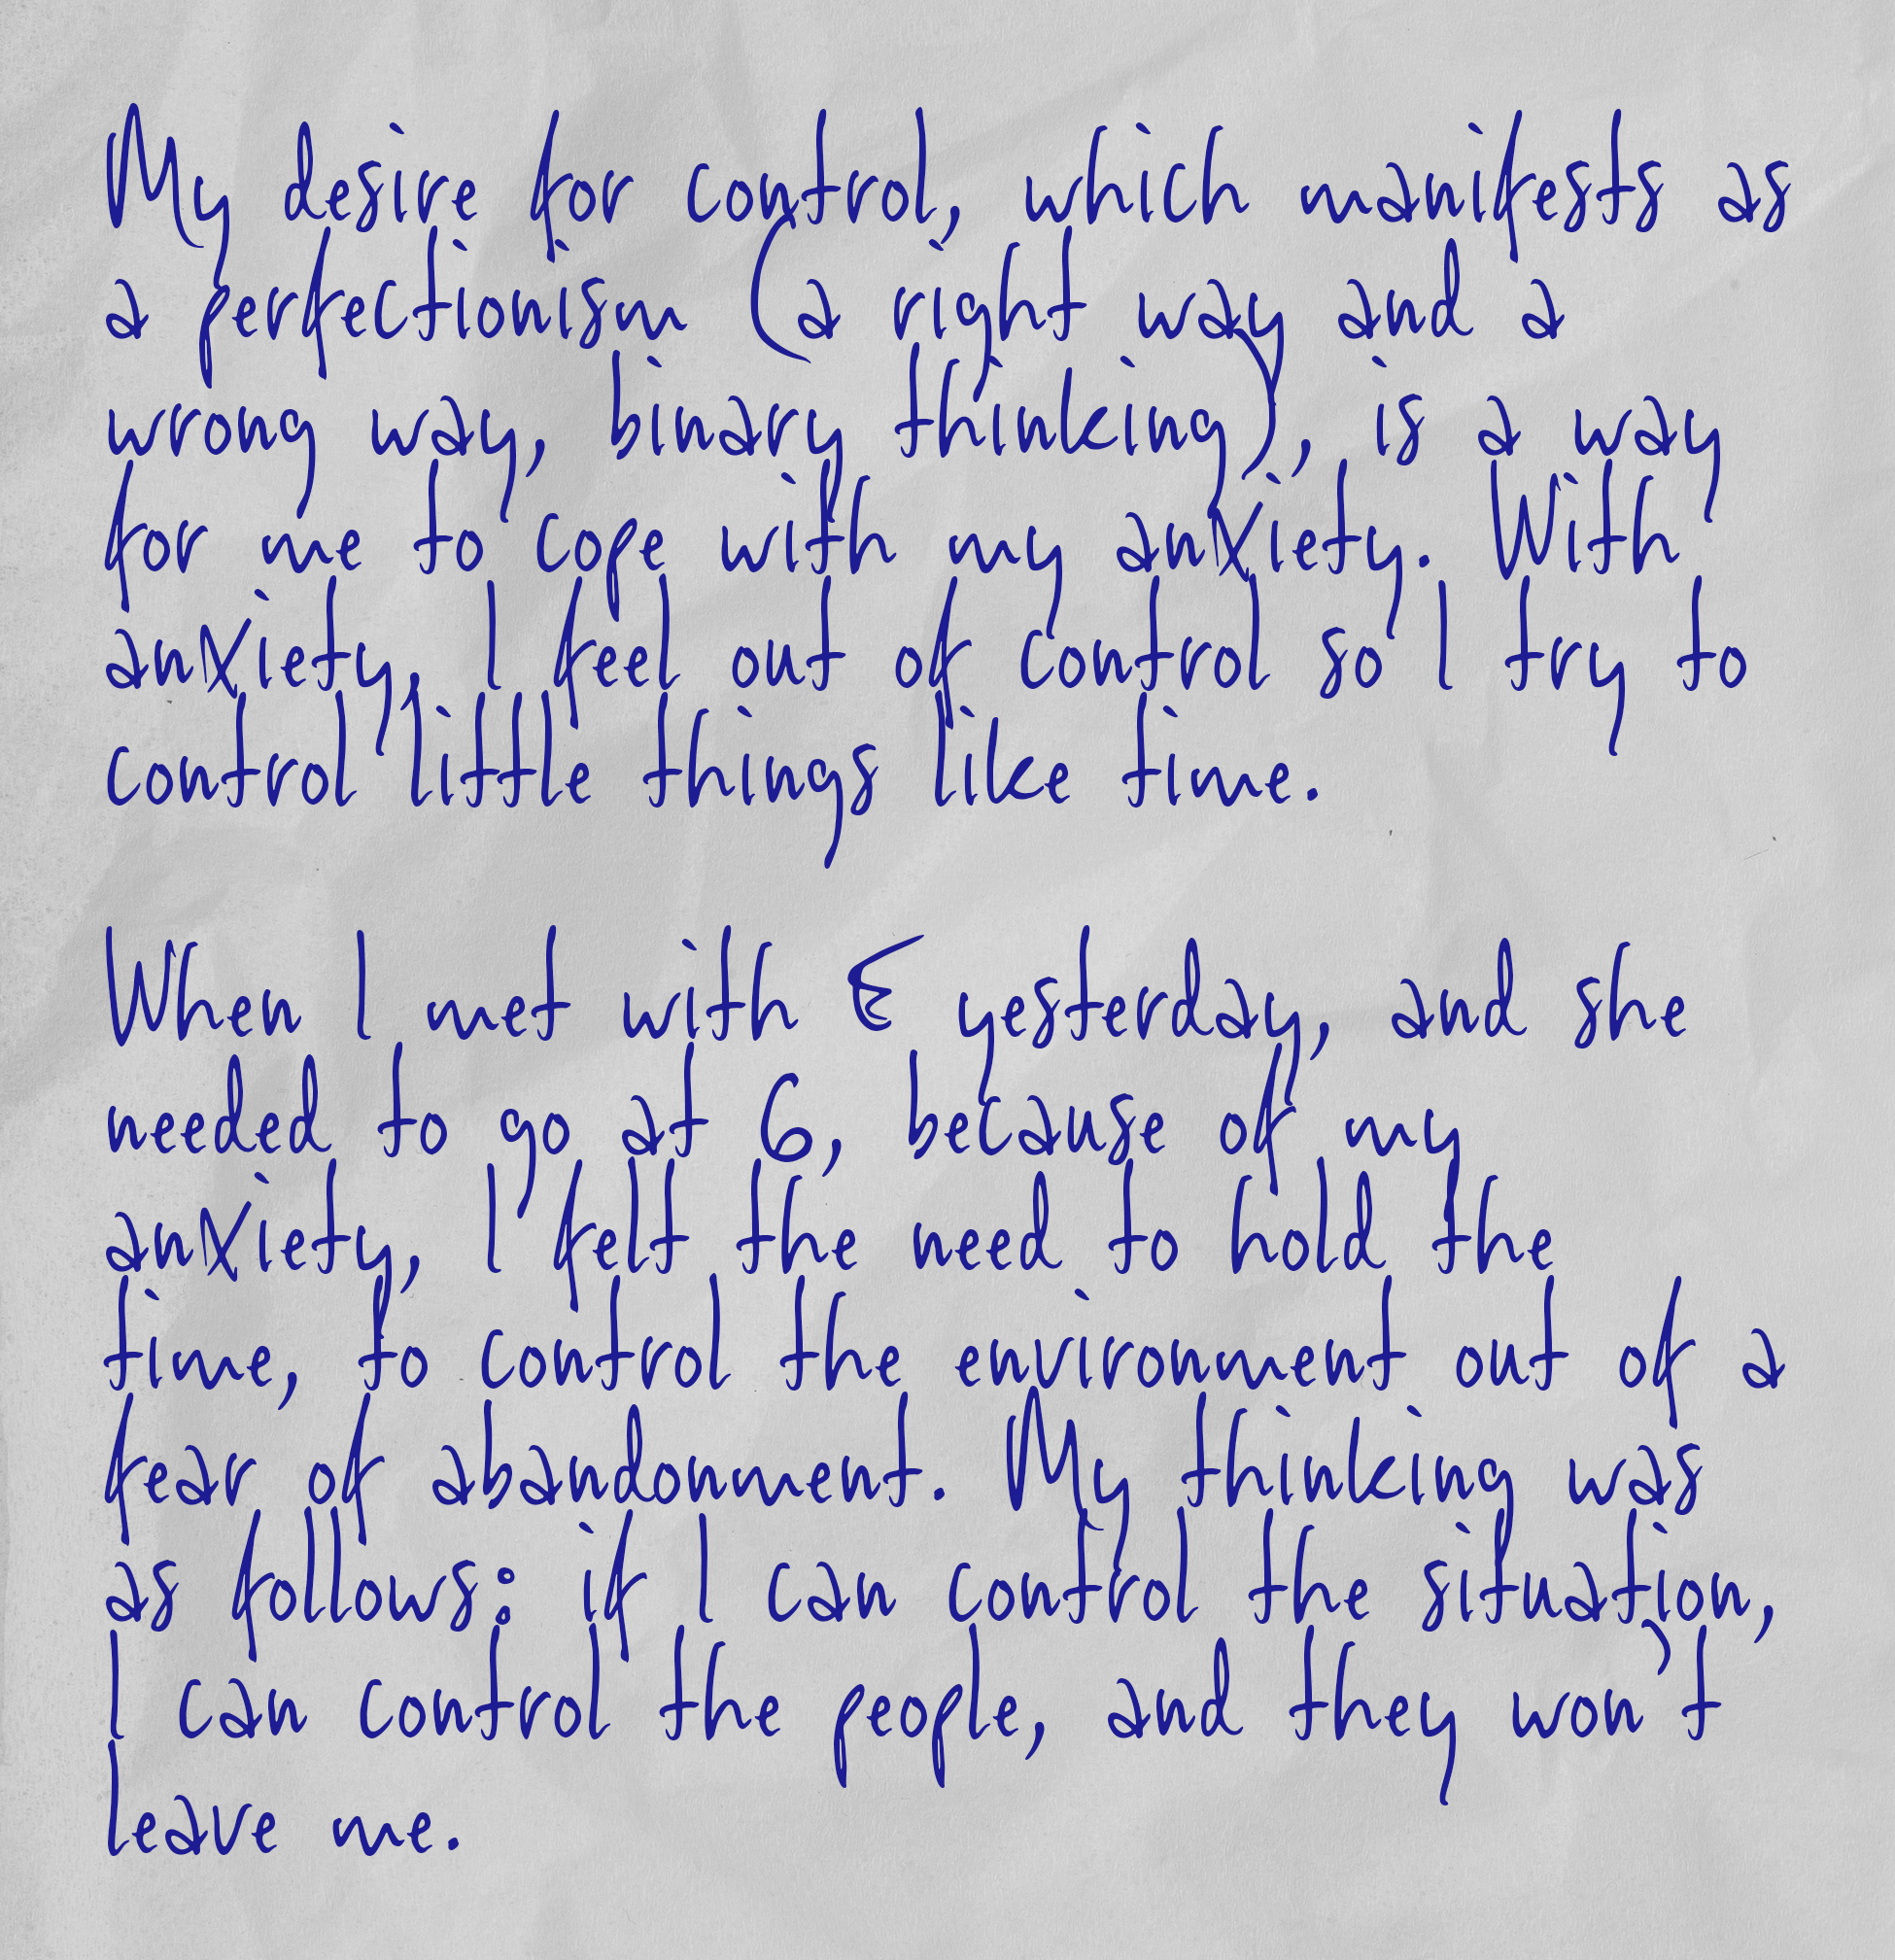 My desire for control, which manifests as
a perfectionism (a right way and a
wrong way, binary thinking), is a way
for me to cope with my anxiety. With
anxiety, I feel out of control so I try to
control little things like time.
When I met with E yesterday, and she
needed to go at 6, because of my
anxiety, I felt the need to hold the
time, to control the environment out of a
fear of abandonment. My thinking was
as follows: if I can control the situation,
I can control the people, and they won't
leave me.